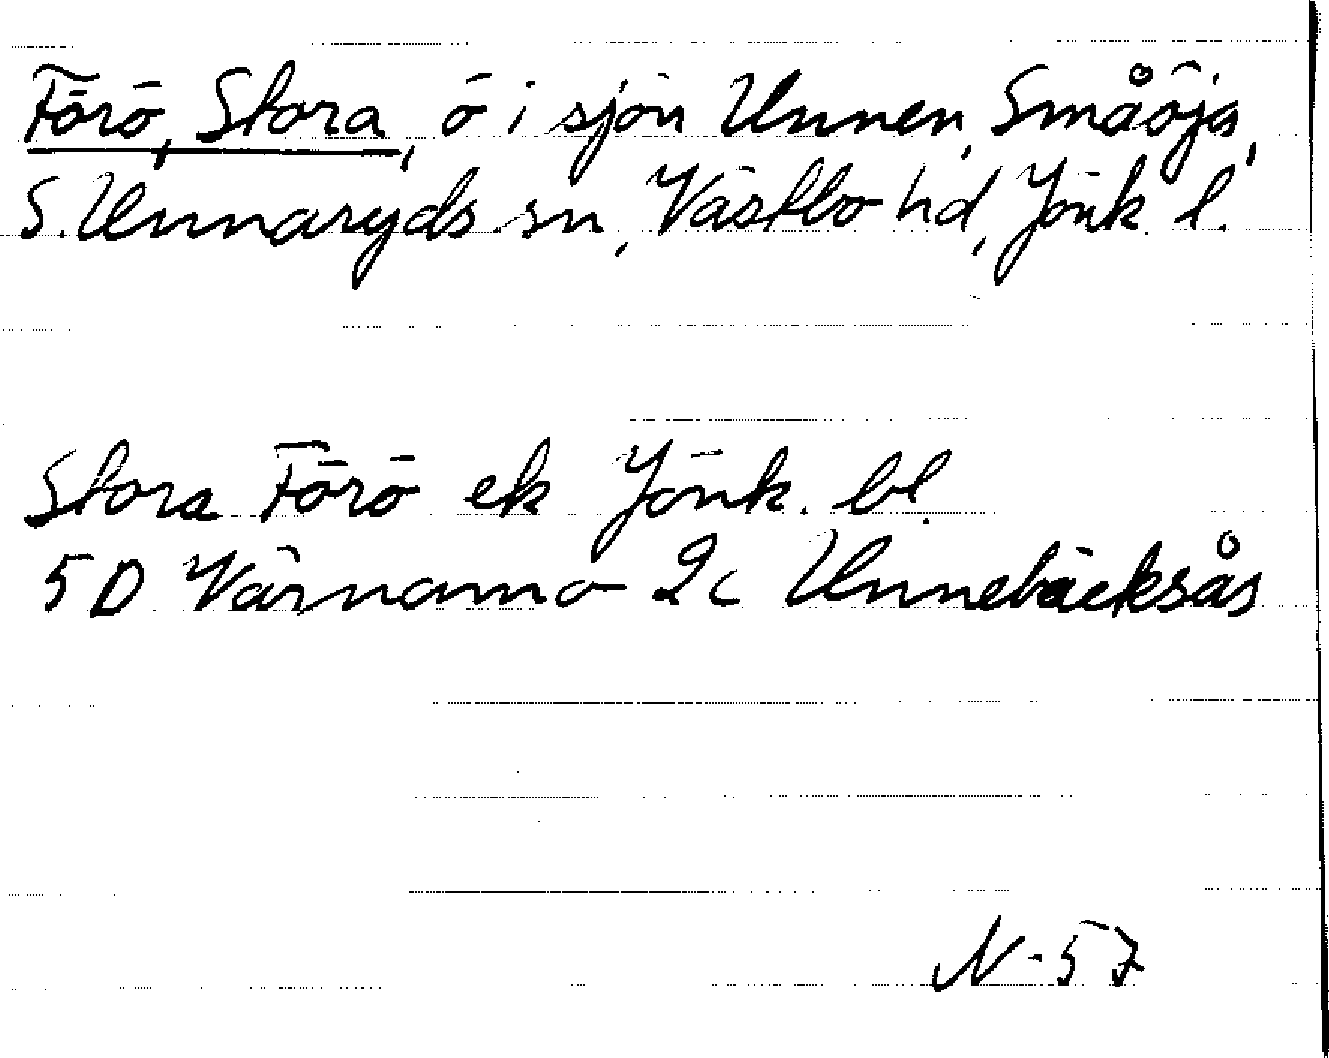 Förö, Stora, ö i sjön Unnen, Småöja,
S. Unnaryds sn, Västbo hd, Jönk l.
Stora Förö ek Jönk. bl.
5D Värnamo 2c Unnebäcksås
N-57